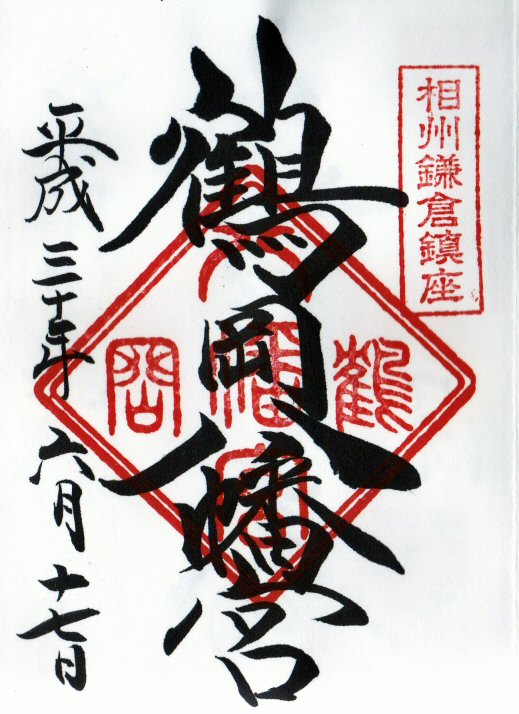 相州鎌倉鎮座
鶴岡八幡宮
鶴岡八幡宮
平成三十年六月十七日